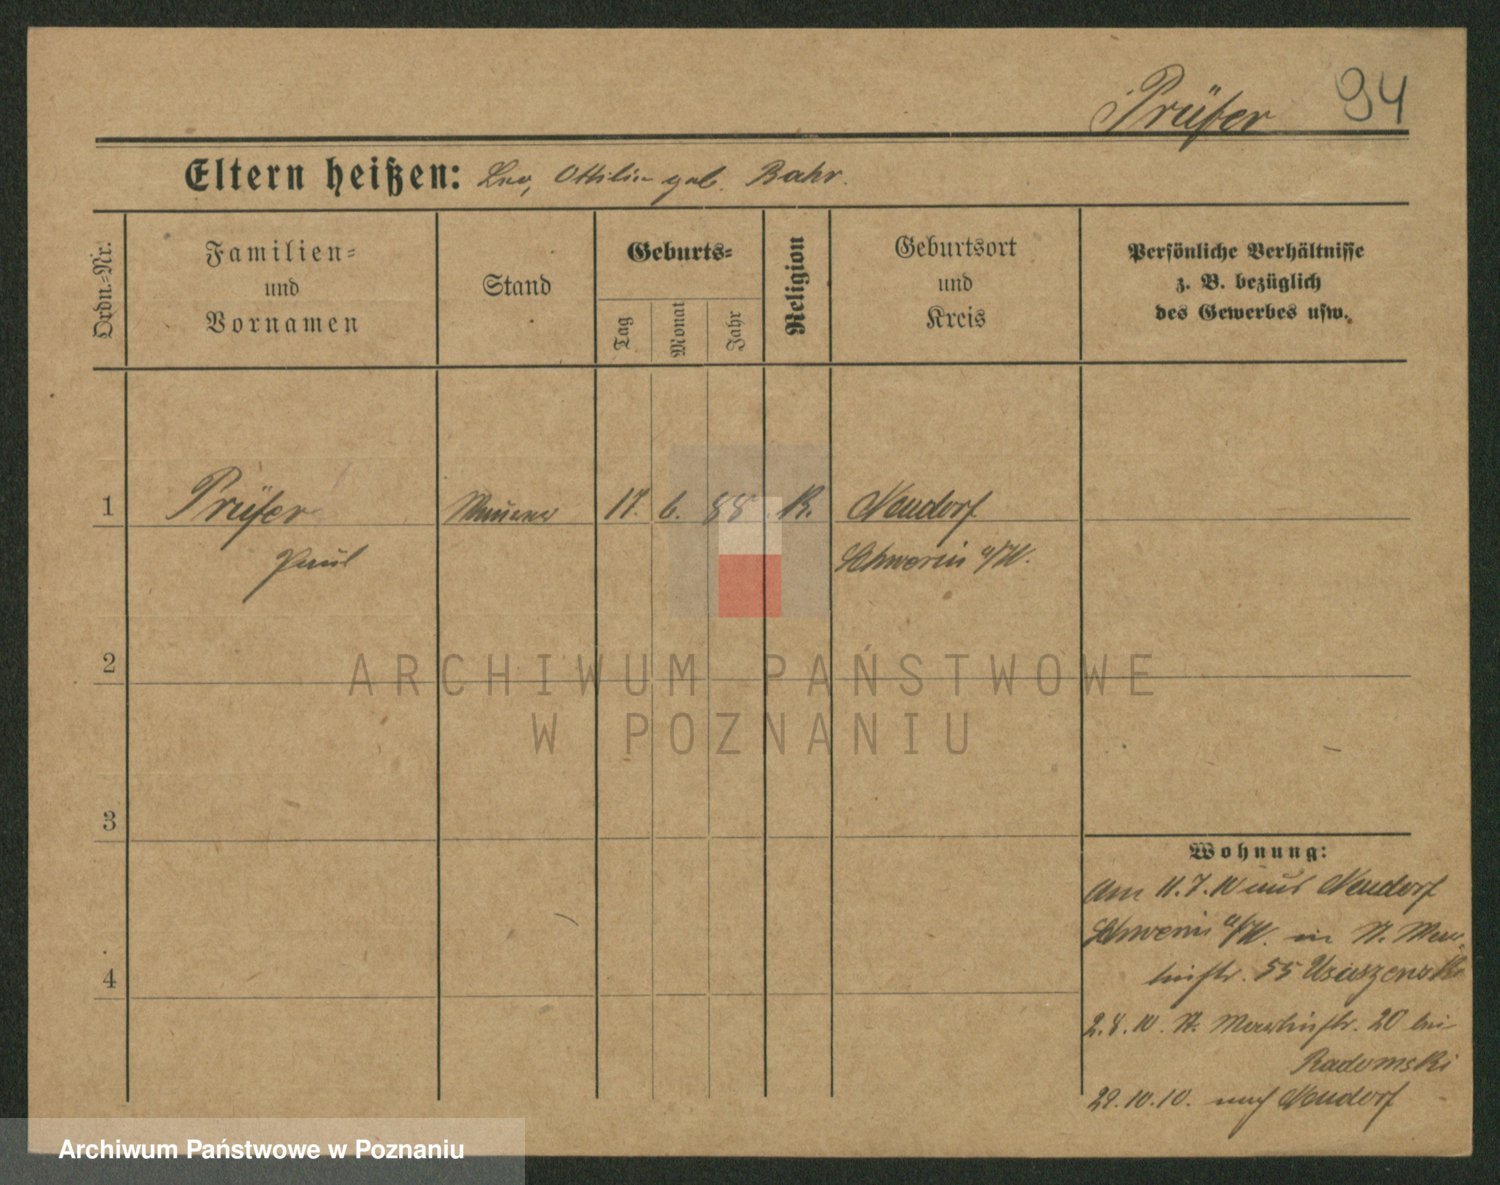 Prüfer 94
Eltern heißen: Leo, Ottilie geb. Bahr.
Ordn.=Nr.
Familien=
und
Vornamen
Stand
Geburts=
Tag
Monat
Jahr
Religion
Geburtsort
und
Kreis
Persönliche Verhältnisse
z. B. bezüglich
des Gewerbes usw.
1 Prüfer Maurer 17. 6. 88 K. Neudorf
Paul Schwerin a/W.
2
3
4
Wohnung:
Am 11.7.10 aus Neudorf
Schwerin a/W. in St. Mar-
tinstr. 55
2.8.10. St. Martinstr. 20 bei
Radomski
29.10.10. nach Neudorf
ARCHIWUM PAŃSTWOWE
W POZNANIU
Archiwum Państwowe w Poznaniu